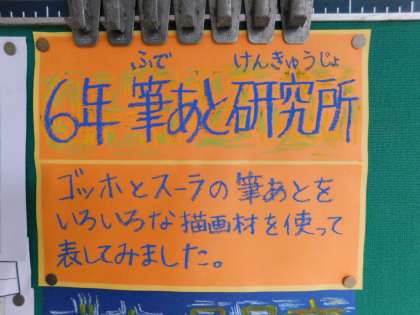 ふで けんきゅうじょ
6年 筆あと研究所
ゴッホとスーラの筆あとを
いろいろな描画材を使って
表してみました。